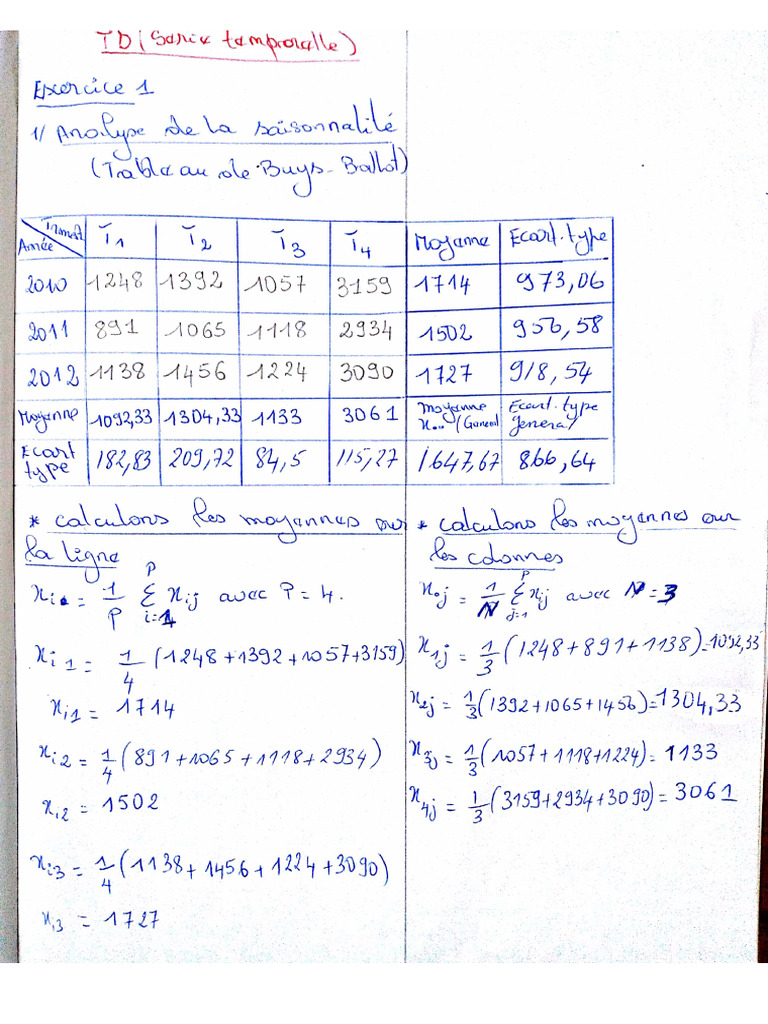 TD (Serie temporelle)
Exercice 1
1/ Analyse de la saisonnalité
(Tableau de Buys-Ballot)
Trimest Année T1 T2 T3 T4 Moyenne Ecart-type
2010 1248 1392 1057 3159 1714 973,06
2011 891 1065 1118 2934 1502 956,58
2012 1138 1456 1224 3090 1727 918,54
Moyenne 1092,33 1304,33 1133 3061 moyenne x.. (General Ecart-type general)
Ecart type 182,83 209,72 84,5 115,27 1647,67 866,64
* calculons les moyennes sur
la ligne
xi. = 1/P Σ(i=1..P) xij avec P = 4.
xi1 = 1/4 (1248+1392+1057+3159)
xi1 = 1714
xi2 = 1/4 (891+1065+1118+2934)
xi2 = 1502
xi3 = 1/4 (1138+1456+1224+3090)
xi3 = 1727
* calculons les moyennes sur
les colonnes
x.j = 1/N Σ(j=1..P) xij avec N = 3
x1j = 1/3 (1248+891+1138) = 1092,33
x2j = 1/3 (1392+1065+1456) = 1304,33
x3j = 1/3 (1057+1118+1224) = 1133
x4j = 1/3 (3159+2934+3090) = 3061